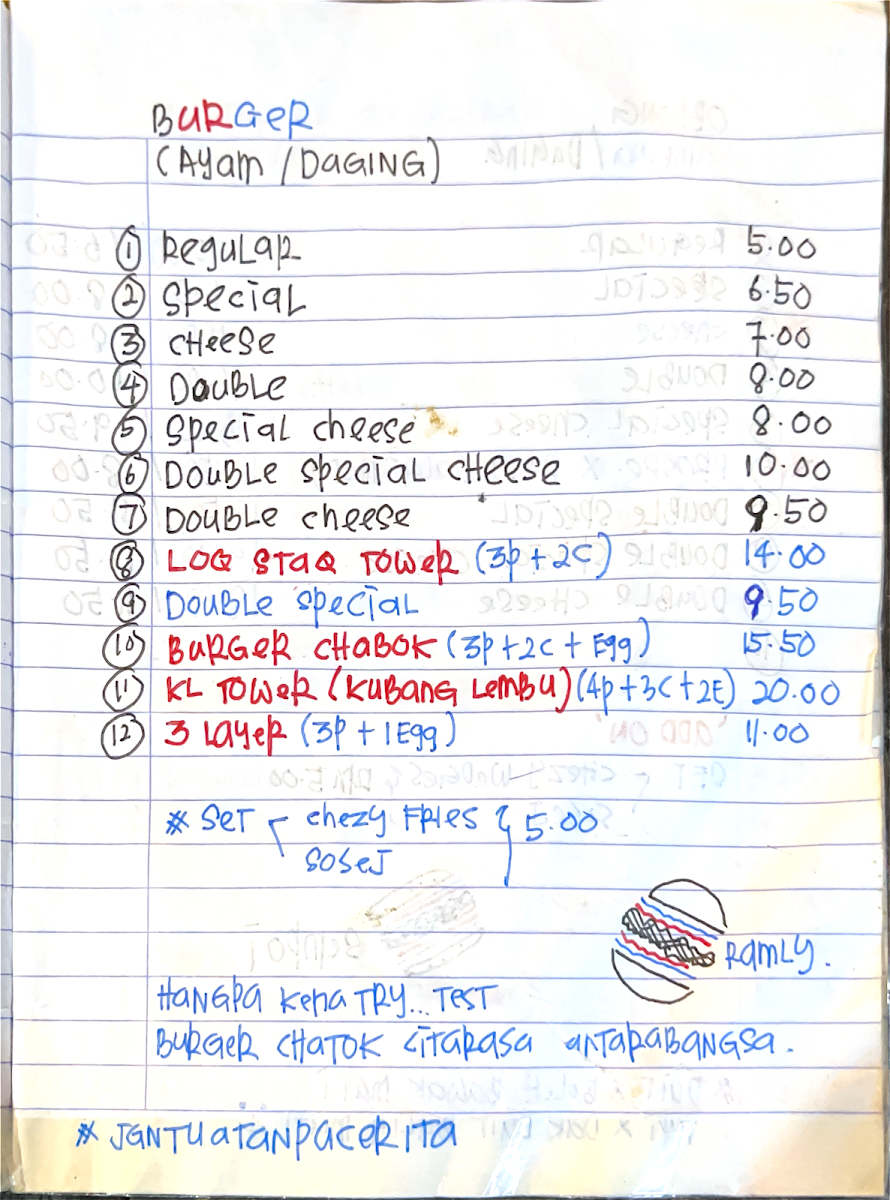 BURGER
(AYAM / DAGING)
1 REGULAR 5.00
2 SPECIAL 6.50
3 CHEESE 7.00
4 DOUBLE 8.00
5 SPECIAL CHEESE 8.00
6 DOUBLE SPECIAL CHEESE 10.00
7 DOUBLE CHEESE 9.50
8 LOQ STAQ TOWER (3P+2C) 14.00
9 DOUBLE SPECIAL 9.50
10 BURGER CHABOK (3P+2C+Egg) 15.50
11 KL TOWER (KUBANG LEMBU) (4P+3C+2E) 20.00
12 3 LAYER (3P+1Egg) 11.00
* SET chezy FRIES 5.00
SOSEJ
RAMLY.
HANGPA KENA TRY... TEST
BURGER CHATOK CITARASA ANTARABANGSA.
* JGNTUATANPACERITA